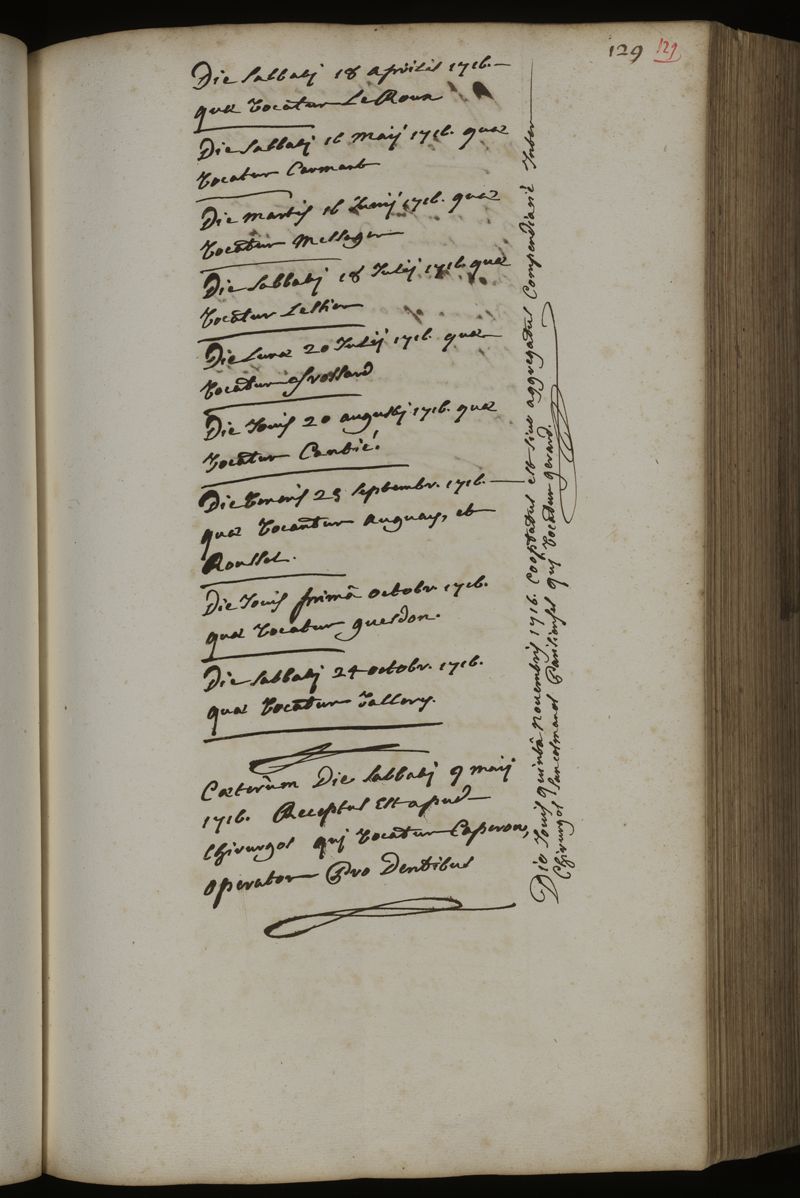 129 129
Die Sabbatj 18 aprilis 1716.
quæ vocatur Le Roux
Die Sabbatj 16 Maij 1716. quæ
vocatur Carmant
Die Martis 16 Junij 1716. quæ
vocatur Messager
Die Sabbatj 18 Julij 1716. quæ
vocatur
Die Lunæ 20 Julij 1716. quæ
vocatur Frossard
Die Jovis 20 augustj 1716. quæ
vocatur Cambié.
Die Veneris 25 septembr. 1716.
quæ vocantur auguay, et
Roussel.
Die Jovis primâ octobr. 1716.
quæ vocatur guesdon.
Die Sabbatj 24 octobr. 1716.
quæ vocatur Tallory.
Cæterùm Die Sabbatj 9 maij
1716. Receptus Est apud
Chirurgos quj vocatur Caperon,
operator Pro Dentibus
Die Jovis quintâ novembris 1716. Cooptatus est sive aggregatus Compendiariè Inter
Chirurgos Parisienses quj vocatur gerard.